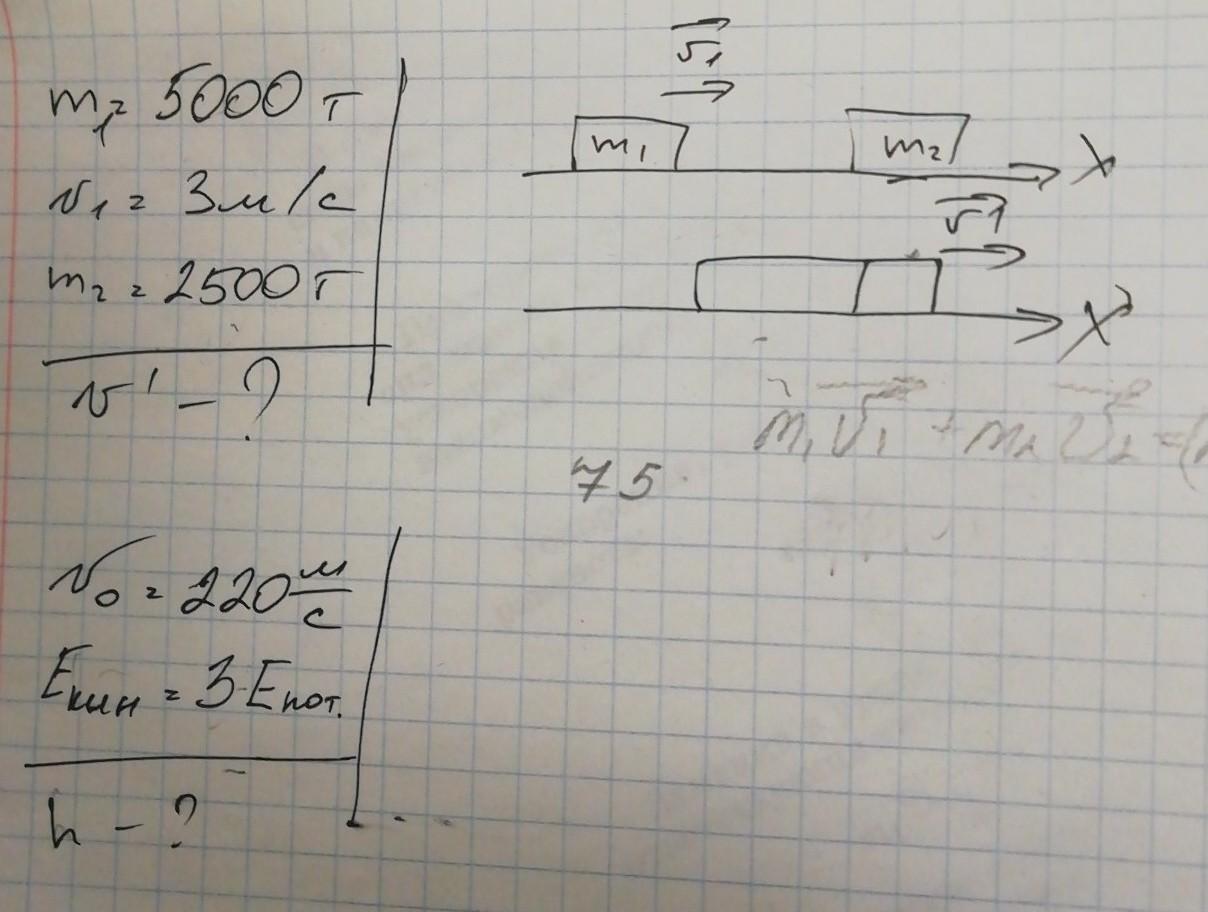 m₁ = 5000 т
v₁ = 3 м/с
m₂ = 2500 т
v' - ?
v₁
m₁ m₂ X
v1
X
m₁v₁ + m₂v₂ = (
75
v₀ = 220 м/с
Eкин = 3·Eпот.
h - ?